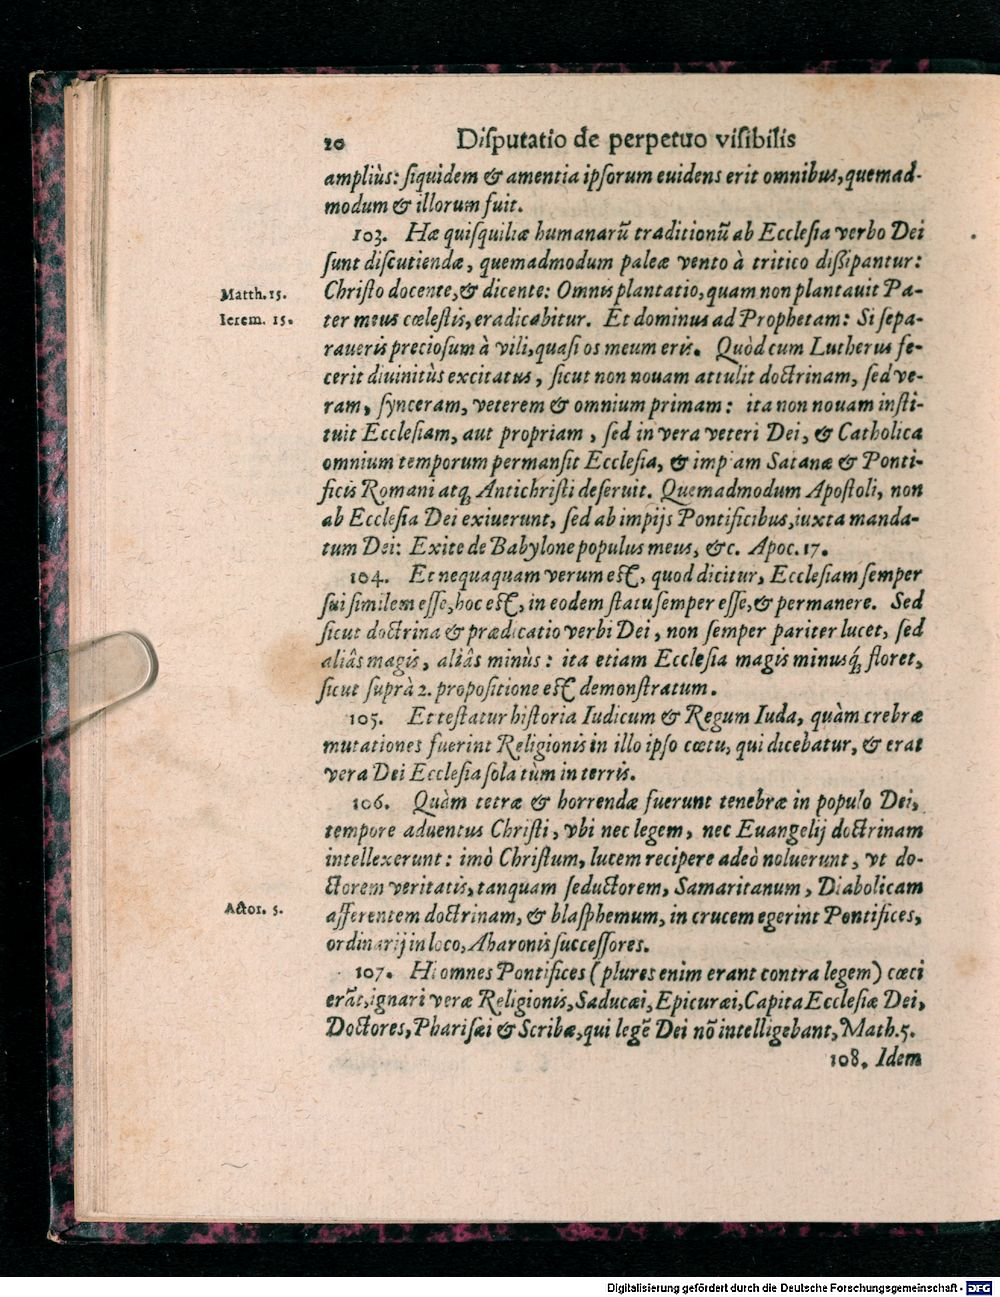 20 Diſputatio de perpetuo viſibilis
ampliùs: ſiquidem & amentia ipſorum euidens erit omnibus, quemad-
modum & illorum fuit.
103. Hæ quiſquiliæ humanarũ traditionũ ab Eccleſia verbo Dei
ſunt diſcutiendæ, quemadmodum paleæ vento à tritico dißipantur:
Matth. 15. Chriſto docente, & dicente: Omnis plantatio, quam non plantauit Pa-
Ierem. 15. ter meus cœleſtis, eradicabitur. Et dominus ad Prophetam: Si ſepa-
raueris precioſum à vili, quaſi os meum eris. Quòd cum Lutherus fe-
cerit diuinitùs excitatus, ſicut non nouam attulit doctrinam, ſed ve-
ram, ſynceram, veterem & omnium primam: ita non nouam inſti-
tuit Eccleſiam, aut propriam, ſed in vera veteri Dei, & Catholica
omnium temporum permanſit Eccleſia, & impiam Satanæ & Ponti-
ficis Romani atq́ Antichriſti deſeruit. Quemadmodum Apoſtoli, non
ab Eccleſia Dei exiuerunt, ſed ab impijs Pontificibus, iuxta manda-
tum Dei: Exite de Babylone populus meus, &c. Apoc. 17.
104. Et nequaquam verum eſt, quod dicitur, Eccleſiam ſemper
ſui ſimilem eſſe, hoc eſt, in eodem ſtatu ſemper eſſe, & permanere. Sed
ſicut doctrina & prædicatio verbi Dei, non ſemper pariter lucet, ſed
aliâs magis, aliâs minùs: ita etiam Eccleſia magis minusq́ floret,
ſicut ſuprà 2. propoſitione eſt demonſtratum.
105. Et teſtatur hiſtoria Iudicum & Regum Iuda, quàm crebræ
mutationes fuerint Religionis in illo ipſo cœtu, qui dicebatur, & erat
vera Dei Eccleſia ſola tùm in terris.
106. Quàm tetræ & horrendæ fuerunt tenebræ in populo Dei,
tempore aduentus Chriſti, vbi nec legem, nec Euangelij doctrinam
intellexerunt: imò Chriſtum, lucem recipere adeò noluerunt, vt do-
ctorem veritatis, tanquam ſeductorem, Samaritanum, Diabolicam
Actor. 5. afferentem doctrinam, & blaſphemum, in crucem egerint Pontifices,
ordinarij in loco, Aharonis ſucceſſores.
107. Hi omnes Pontifices (plures enim erant contra legem) cœci
erãt, ignari veræ Religionis, Saducæi, Epicuræi, Capita Eccleſiæ Dei,
Doctores, Phariſæi & Scribæ, qui legẽ Dei nõ intelligebant, Math. 5.
108. Idem
Digitalisierung gefördert durch die Deutsche Forschungsgemeinschaft - DFG